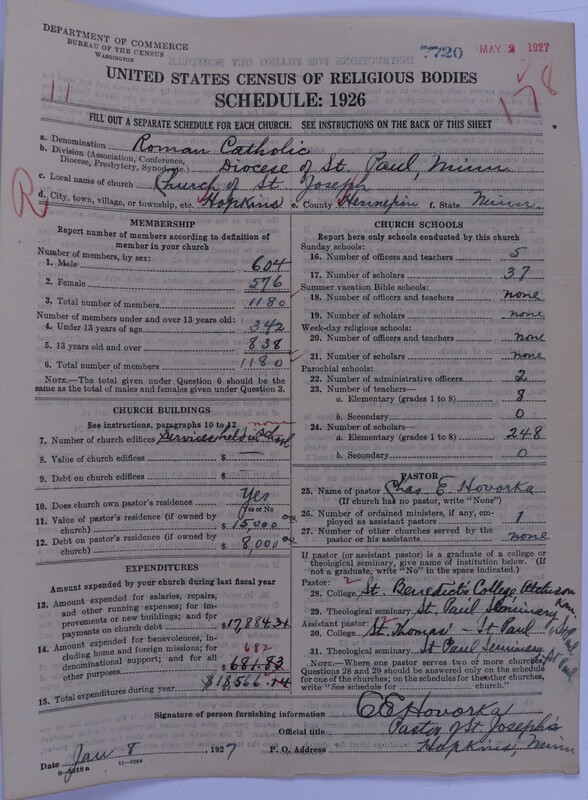 DEPARTMENT OF COMMERCE
BUREAU OF THE CENSUS
WASHINGTON
7720 MAY 2 1927
UNITED STATES CENSUS OF RELIGIOUS BODIES
SCHEDULE: 1926
11 178
FILL OUT A SEPARATE SCHEDULE FOR EACH CHURCH. SEE INSTRUCTIONS ON THE BACK OF THIS SHEET
a. Denomination Roman Catholic
b. Division (Association, Conference, Diocese, Presbytery, Synod, etc.) Diocese of St. Paul, Minn
c. Local name of church Church of St. Joseph
R
d. City, town, village, or township, etc. Hopkins e. County Hennepin f. State Minn.
MEMBERSHIP
Report number of members according to definition of
member in your church
Number of members, by sex:
1. Male 604
2. Female 576
3. Total number of members 1180
Number of members under and over 13 years old:
4. Under 13 years of age 342
5. 13 years old and over 838
6. Total number of members 1180
NOTE.—The total given under Question 6 should be the
same as the total of males and females given under Question 3.
CHURCH BUILDINGS
See instructions, paragraphs 10 to 12 none
7. Number of church edifices Services held in school
8. Value of church edifices $ —
9. Debt on church edifices $ —
10. Does church own pastor's residence? Yes
Yes or No
11. Value of pastor's residence (if owned by
church) $ 15,000 00
12. Debt on pastor's residence (if owned by
church) $ 8,000 00
EXPENDITURES
Amount expended by your church during last fiscal year
13. Amount expended for salaries, repairs,
and other running expenses; for im-
provements or new buildings; and for
payments on church debt $17,884.31
14. Amount expended for benevolences, in-
cluding home and foreign missions; for
denominational support; and for all
other purposes $ 681.83
682
15. Total expenditures during year $18,566.14
CHURCH SCHOOLS
Report here only schools conducted by this church
Sunday schools:
16. Number of officers and teachers 5
17. Number of scholars 37
Summer vacation Bible schools:
18. Number of officers and teachers none
19. Number of scholars none
Week-day religious schools:
20. Number of officers and teachers none
21. Number of scholars none
Parochial schools:
22. Number of administrative officers 2
23. Number of teachers—
a. Elementary (grades 1 to 8)
b. Secondary 0
24. Number of scholars—
a. Elementary (grades 1 to 8) 248
b. Secondary 0
PASTOR
25. Name of pastor Chas E. Hovorka
(If church has no pastor, write "None")
26. Number of ordained ministers, if any, em-
ployed as assistant pastors 1
27. Number of other churches served by the
pastor or his assistants none
If pastor (or assistant pastor) is a graduate of a college or
theological seminary, give name of institution below. (If
not a graduate, write "No" in the space indicated.)
Pastor: 2
28. College St. Benedict's College, Atchison Kan
29. Theological seminary St. Paul Seminary St Paul
Assistant pastor:
30. College St. Thomas' - St Paul
31. Theological seminary St Paul Seminary St Paul
NOTE.—Where one pastor serves two or more churches,
Questions 28 and 29 should be answered only on the schedule
for one of the churches; on the schedules for the other churches,
write "See schedule for church."
Signature of person furnishing information C E Hovorka
Official title Pastor of St. Joseph's
Date Jan 8, 1927 P. O. Address Hopkins, Minn
11—9284